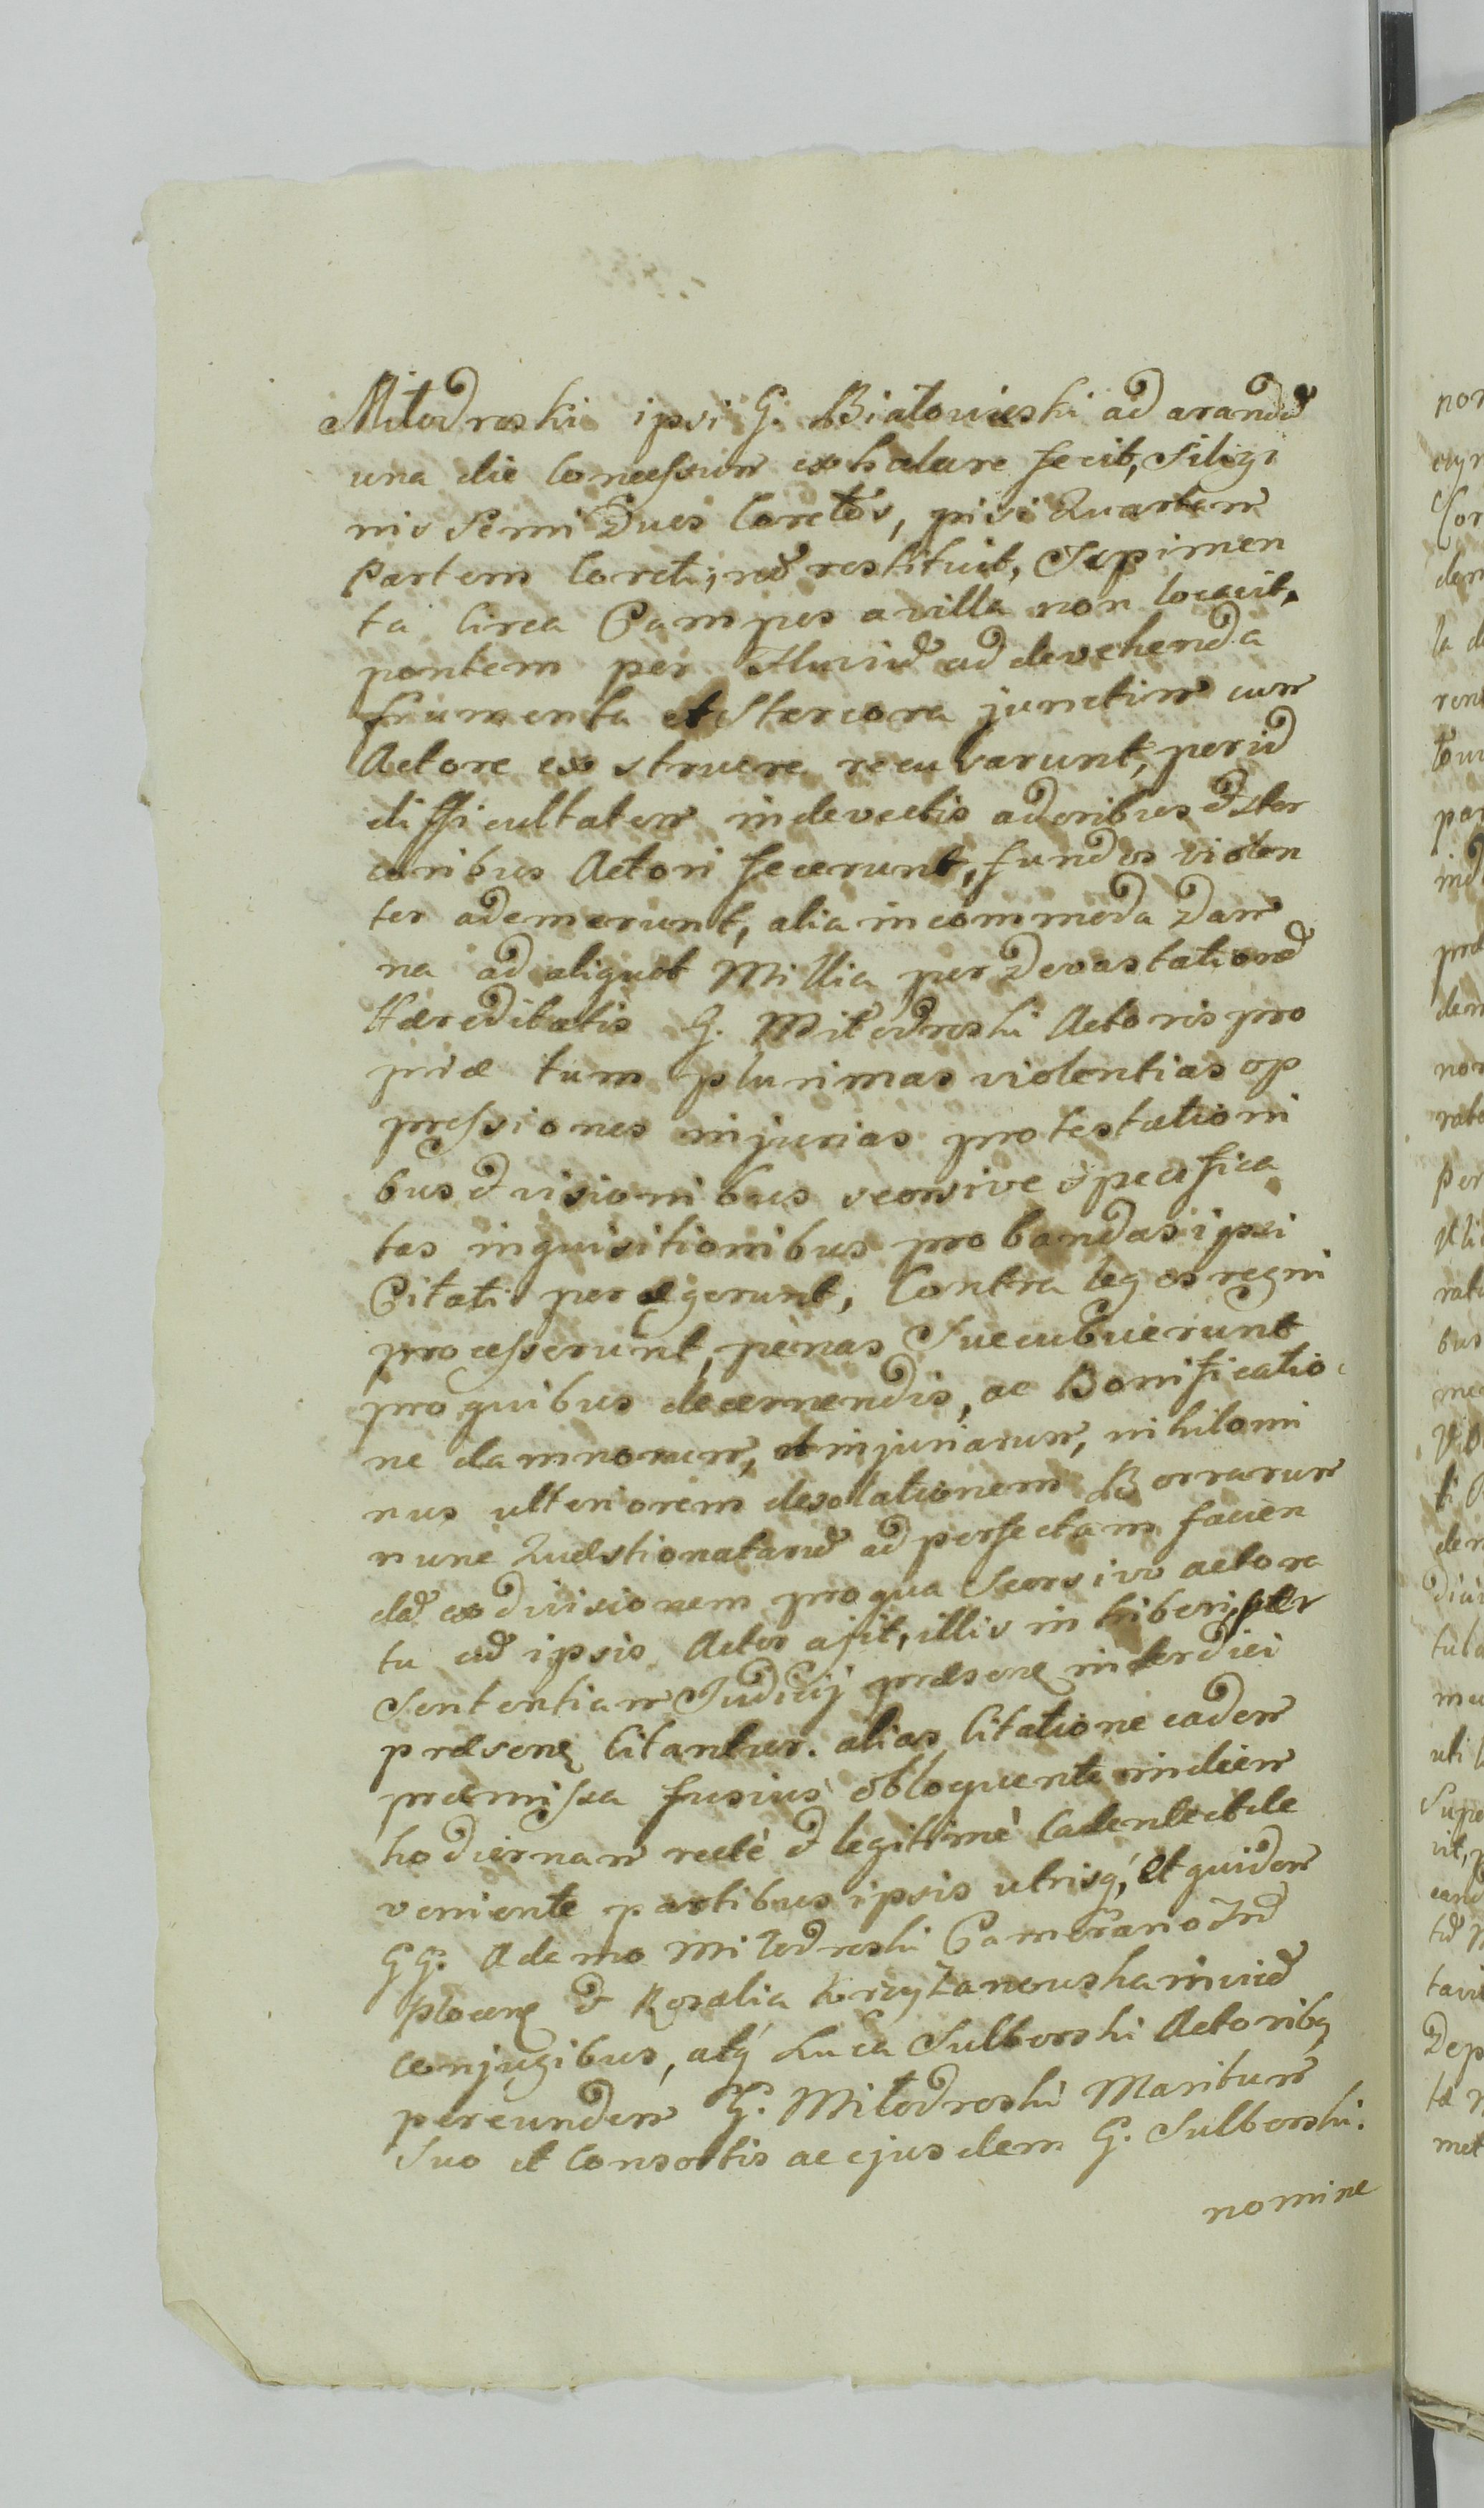 Miłodroski ipsi G. Białowieski ad arandũ
una die Concessum exhalare fecit, siligi
nis semi Duos Coretos, pisi Quartam
Partem Coreti, nõ restituit, Sepimen
ta circa Campos a villa non locavit,
pontem per Fluviũ ad devehenda
frumenta et Stercora junctim cum
Actore ex struere recusarunt, per id
difficultatem in devectis adoribus & ster
coribus Actori fecerunt, fundos violen
ter ademerunt, alia incommoda Dam
na ad aliquot Millia per Devastationẽ
Hæreditatis G. Miłodroski Actoris pro
priæ tum plurimas violentias op
pressiones injurias protestationi
bus & visionibus seorsive specifica
tas inquisitionibus probandas ipsi
Citati peregerunt, Contra leges regni
processerunt, penas Succubuerunt
pro quibus decernendis, ac Bonificatio
ne damnorum, et injuriarum, nihilomi
nus ulteriorem desolationem Borrarum
nunc Quæstionatarũ ad perfectam facien
dã ex divisionem pro qua Seorsivo actora
tu cũ ipsis Actor agit, illis inhiberi, per
Sententiam Judicij præsenꝭ interdici
præsenꝭ Citantur. alias Citatione eadem
præmissa fusius obloquente in diem
hodiernam rectè & legitimè Cadente et de
veniente partibus ipsis utrisq́, Et quidem
GG. Adamo Miłodroski Camerario Trõ
Plocenꝭ & Rosalia Krzyżanowska invicẽ
conjugibus, atq́ Luca Sulborski Actoribꝫ
per eundem G. Miłodroski Maritum
Suo et Consortis ac ejusdem G. Sulborski.
nomine